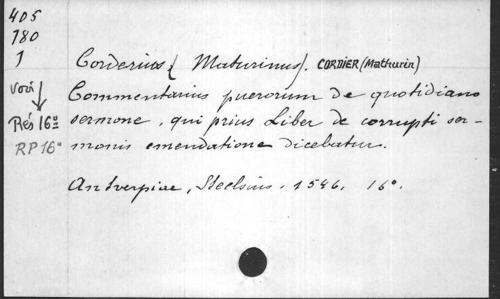 405
780
1
Corderius (Maturinus). CORDIER (Mathurin)
voir
Commentarius puerorum de quotidiano
Rés 16º
sermone, qui prius Liber de corrupti ser-
RP 16º
monis emendatione dicebatur.
Antverpiae, Steelsius, 1546. 16º.